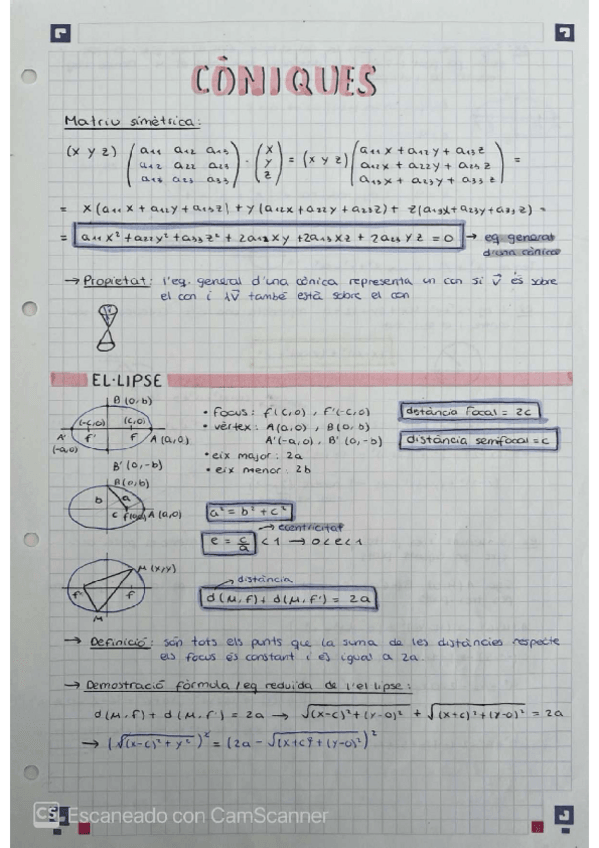 CÒNIQUES
Matriu simètrica:
(x y z) (a₁₁ a₁₂ a₁₃ · (x = (x y z) (a₁₁x + a₁₂y + a₁₃z =
a₁₂ a₂₂ a₂₃ y a₁₂x + a₂₂y + a₂₃z
a₁₃ a₂₃ a₃₃) z) a₁₃x + a₂₃y + a₃₃z)
= x(a₁₁x + a₁₂y + a₁₃z) + y(a₁₂x + a₂₂y + a₂₃z) + z(a₁₃x + a₂₃y + a₃₃z) =
= a₁₁x² + a₂₂y² + a₃₃z² + 2a₁₂xy + 2a₁₃xz + 2a₂₃yz = 0 → eq general
d'una cònica
→ Propietat: l'eq. general d'una cònica representa un con si v⃗ és sobre
el con i λv⃗ també està sobre el con
EL·LIPSE
B(0,b)
(-c,0) (c,0)
A' f' f A(a,0)
(-a,0)
B'(0,-b)
• focus: f(c,0), f'(-c,0)
• vèrtex: A(a,0), B(0,b)
A'(-a,0), B'(0,-b)
• eix major: 2a
• eix menor: 2b
distància focal = 2c
distància semifocal = c
B(0,b)
b a
c A(a,0)
a² = b² + c²
→ excentricitat
e = c/a < 1 → 0<e<1
M(x,y)
f' f
M
distància
d(M,f) + d(M,f') = 2a
→ Definició: són tots els punts que la suma de les distàncies respecte
els focus és constant i és igual a 2a.
→ Demostració fórmula/eq reduïda de l'el·lipse:
d(M,f) + d(M,f') = 2a → √(x-c)²+(y-0)² + √(x+c)²+(y-0)² = 2a
→ (√(x-c)²+y²)² = (2a - √(x+c)²+(y-0)²)²
CS Escaneado con CamScanner